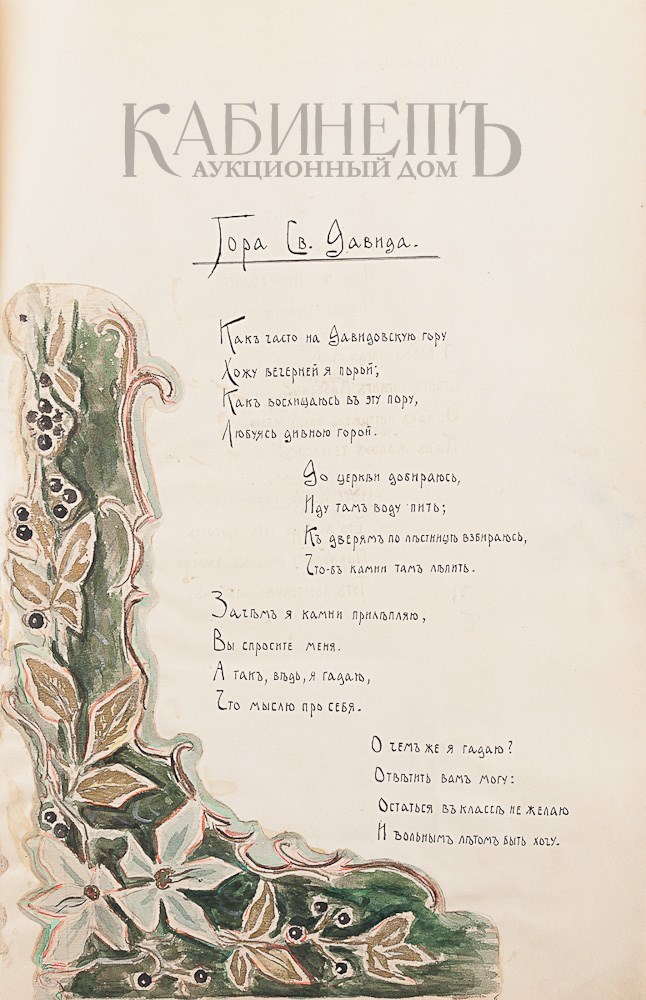 КАБИНЕТЪ
АУКЦИОННЫЙ ДОМ
Гора Св. Давида.
Какъ часто на Давидовскую гору
Хожу вечерней я порой;
Какъ восхищаюсь въ эту пору,
Любуясь дивною горой.
До церкви добираюсь,
Иду тамъ воду пить;
Къ дверямъ по лѣстницѣ взбираюсь,
Что-бъ камни тамъ лѣпить.
Зачѣмъ я камни прилѣпляю,
Вы спросите меня.
А такъ, вѣдь, я гадаю,
Что мыслю про себя.
О чемъ же я гадаю?
Отвѣтить вамъ могу:
Остаться въ классѣ не желаю
И вольнымъ лѣтомъ быть хочу.